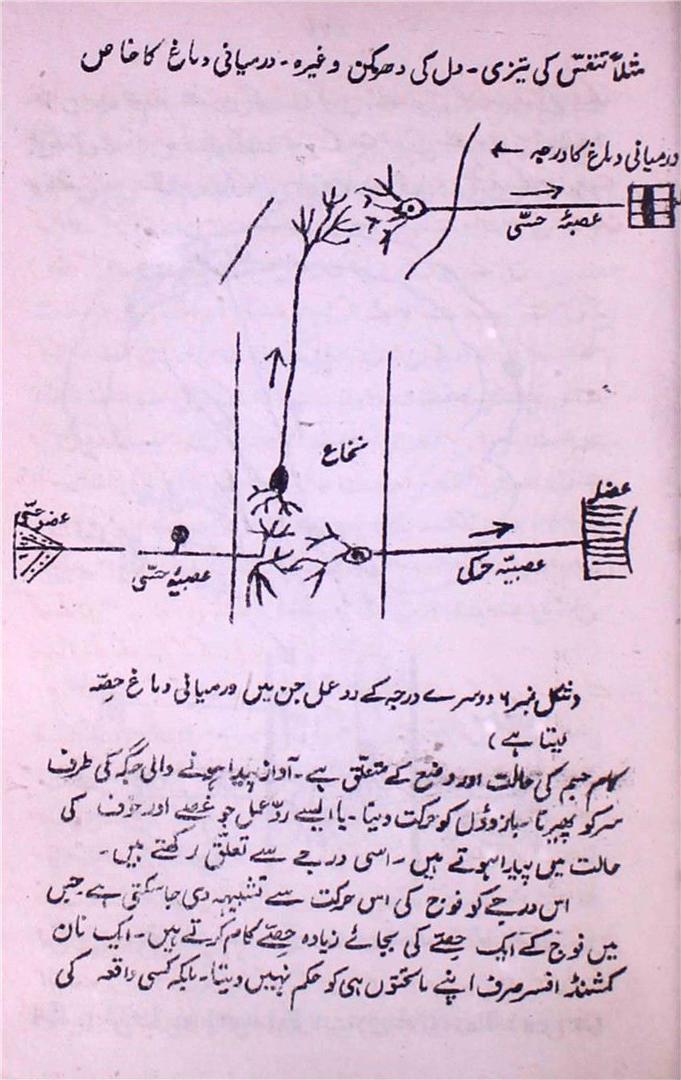 مثلاً تنفس کی تیزی۔ دل کی دھڑکن وغیرہ۔ درمیانی دماغ کا خاص
درمیانی دماغ کا درجہ ←
عصبۂ حسّی
نخاع
عضلہ
عضو حسّی
عصبیۂ حسّی
عصبیّہ حرکی
(شکل نمبر ۶ دوسرے درجہ کے ردِ عمل جن میں درمیانی دماغ حِصّہ
لیتا ہے)
کام جسم کی حالت اور وضع کے متعلق ہے۔ آواز پیدا ہونے والی جگہ کی طرف
سر کو پھیرنا یا بازوؤں کو حرکت دینا۔ یا ایسے ردِّ عمل جو غصے اور خوف کی
حالت میں پیدا ہوتے ہیں۔ اسی درجے سے تعلّق رکھتے ہیں۔
اس درجے کو فوج کی اس حرکت سے تشبیہہ دی جا سکتی ہے جس
میں فوج کے ایک حِصّے کی بجائے زیادہ حِصّے کام کرتے ہیں۔ ایک نان
کمشنڈ افسر صرف اپنے ماتحتوں ہی کو حکم نہیں دیتا۔ بلکہ کسی واقعہ کی